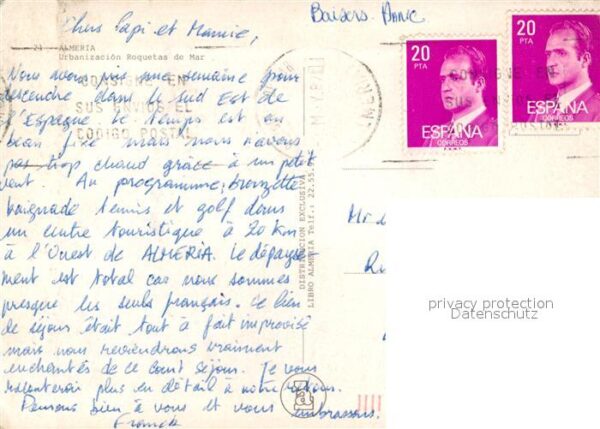 Chers Papi et Mamie,
Baisers. Anne
24 ALMERIA
Urbanización Roquetas de Mar
Nous avons mis une semaine pour
descendre dans le sud Est de
l'Espagne. Le temps est au
beau fixe mais nous n'avons
pas trop chaud grâce à un petit
vent. Au programme, bronzette
baignade tennis et golf dans
un centre touristique à 20 km
à l'Ouest de ALMERIA. Le dépayse
ment est total car nous sommes
presque les seuls français. Ce lieu
de séjour était tout à fait improvisé
mais nous reviendrons vraiment
enchantés de ce court séjour. Je vous
raconterai plus en détail à notre retour.
Pensons bien à vous et vous embrassons.
Franck
CONSIGNE EN
SUS ENVIOS EL
CODIGO POSTAL
DISTRIBUCION EXCLUSIVA
LIBRO ALMERIA Telf.: 22.55.
20
PTA
ESPAÑA
CORREOS
20
PTA
ESPAÑA
CORREOS
Mr
privacy protection
Datenschutz
a